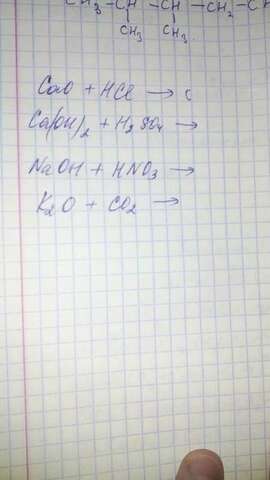 CH₃-CH-CH-CH₂-CH
CH₃ CH₃
CaO + HCl → C
Ca(OH)₂ + H₂SO₄ →
NaOH + HNO₃ →
K₂O + CO₂ →